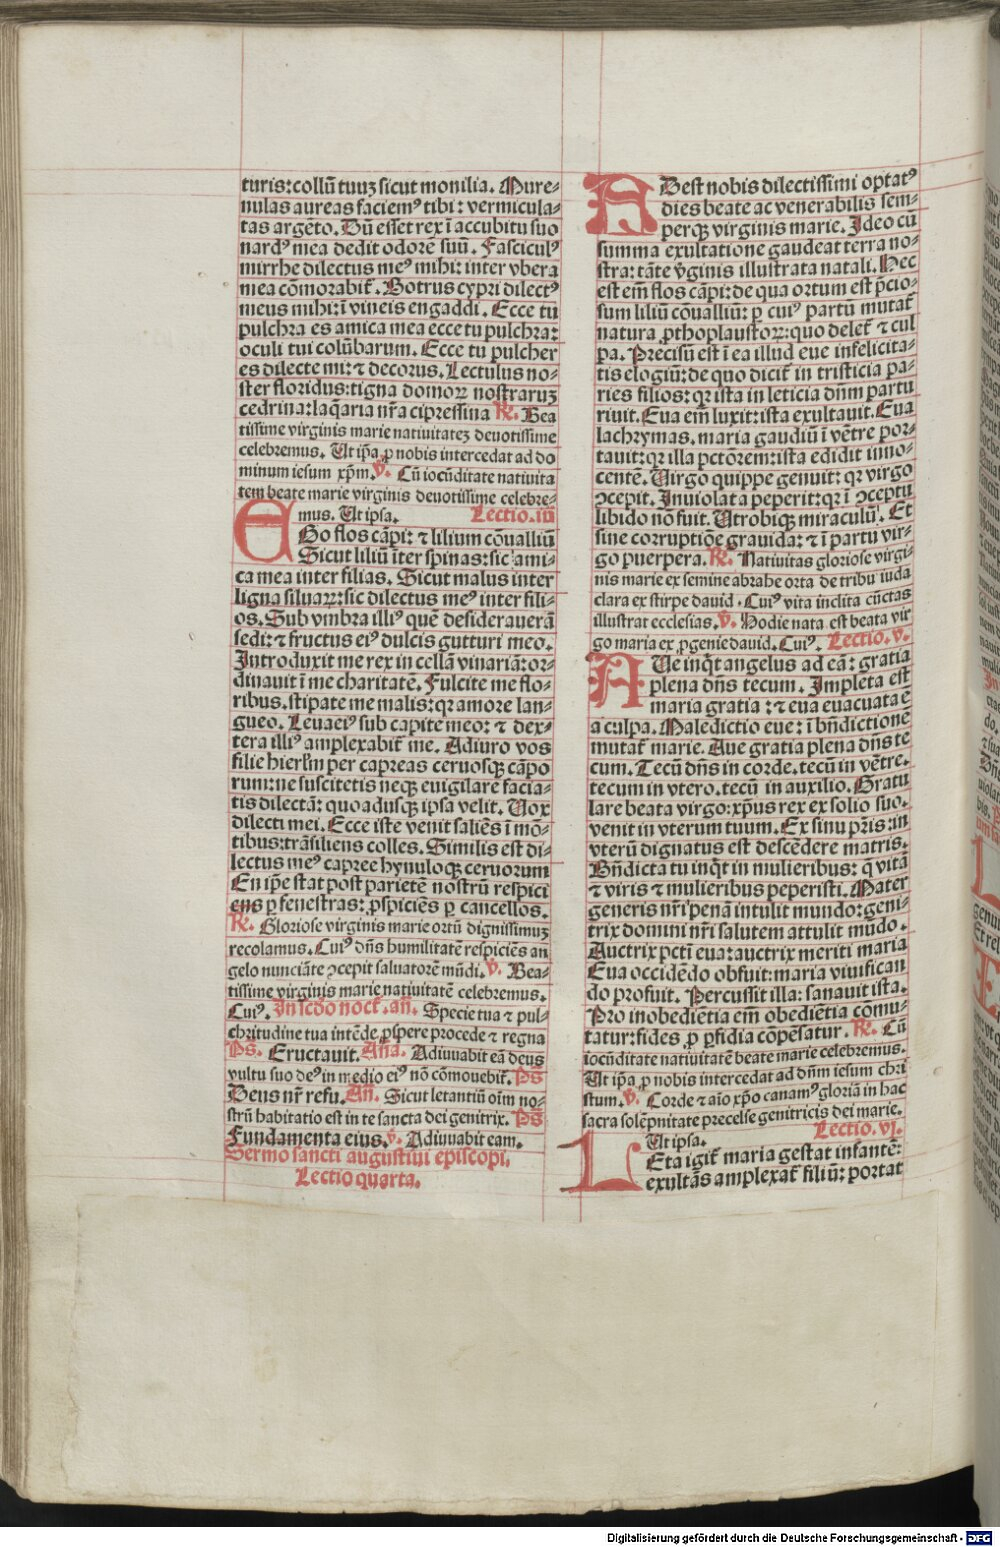 turis: collū tuuꝫ sicut monilia. Mure-
nulas aureas faciemꝰ tibi: vermicula-
tas argēto. Dū esset rex ī accubitu suo
nardꝰ mea dedit odorē suū. Fasciculꝰ
mirrhe dilectus meꝰ mihi: inter vbera
mea cōmorabit̄. Botrus cypri dilectꝰ
meus mihi: ī vineis engaddi. Ecce tu
pulchra es amica mea ecce tu pulchra:
oculi tui colūbarum. Ecce tu pulcher
es dilecte mi: ⁊ decorus. Lectulus no-
ster floridus: tigna domoꝝ nostraruꝫ
cedrina: laq̄aria nr̄a cipressina ℟. Bea
tissime virginis marie natiuitateꝫ deuotissime
celebremus. Ut ip̄a ꝓ nobis intercedat ad do
minum iesum xp̄m. ℣. Cū iocūditate natiuita
tem beate marie virginis deuotissime celebre-
mus. Ut ipsa. Lectio. iii
EGo flos cāpi: ⁊ lilium cōualliū
Sicut liliū īter spinas: sic ami-
ca mea inter filias. Sicut malus inter
ligna siluaꝝ: sic dilectus meꝰ inter fili-
os. Sub vmbra illiꝰ quē desideraueraꝫ
sedi: ⁊ fructus eiꝰ dulcis gutturi meo.
Introduxit me rex in cellā vinariā: or-
dinauit ī me charitatē. Fulcite me flo-
ribus. stipate me malis: qꝛ amore lan-
gueo. Leua eiꝰ sub capite meo: ⁊ dex-
tera illiꝰ amplexabit̄ me. Adiuro vos
filie hierlm̄ per capreas ceruosqꝫ cāpo
rum: ne suscitetis neqꝫ euigilare facia-
tis dilectā: quoadusqꝫ ipsa velit. Vox
dilecti mei. Ecce iste venit saliēs ī mō-
tibus: trāsiliens colles. Similis est di-
lectus meꝰ capree hynuloqꝫ ceruorum
En ip̄e stat post parietē nostrū respici
ens ꝑ fenestras: ꝓspiciēs ꝑ cancellos.
℟. Gloriose virginis marie ortū dignissimuꝫ
recolamus. Cuiꝰ dn̄s humilitatē respiciēs an
gelo nunciāte ↄcepit saluatorē mūdi. ℣. Bea-
tissime virginis marie natiuitatē celebremus.
Cuiꝰ. In scd̄o noct̄. an̄. Specie tua ⁊ pul-
chritudine tua intēde ꝓspere procede ⁊ regna
Ps. Eructauit. Añā. Adiuuabit eā deus
vultu suo deꝰ in medio eiꝰ nō cōmouebit̄. Ps
Deus nr̄ refu. An̄. Sicut letantiū oīm no-
strū habitatio est in te sancta dei genitrix. Ps
Fundamenta eius. ℣. Adiuuabit eam.
Sermo sancti augustini episcopi.
Lectio quarta.
ADest nobis dilectissimi optatꝰ
dies beate ac venerabilis sem-
perqꝫ virginis marie. Ideo cū
summa exultatione gaudeat terra no-
stra: tāte v̄ginis illustrata natali. Hec
est em̄ flos cāpi: de qua ortum est p̄cio-
sum liliū cōualliū: ꝑ cuiꝰ partū mutat̄
natura ꝓthoplaustoꝝ: quo delet̄ ⁊ cul
pa. Precisū est ī ea illud eue infelicita-
tis elogiū: de quo dicit̄ in tristicia pa-
ries filios: qꝛ ista in leticia dn̄m partu
riuit. Eua em̄ luxit: ista exultauit. Eua
lachrymas. maria gaudiū ī vētre por-
tauit: qꝛ illa pctōrem: ista edidit inno-
centē. Virgo quippe genuit: qꝛ virgo
ↄcepit. Inuiolata peperit: qꝛ ī ↄceptu
libido nō fuit. Utrobiqꝫ miraculū. Et
sine corruptiōe grauida: ⁊ ī partu vir-
go puerpera. ℟. Natiuitas gloriose virgi-
nis marie ex semine abrahe orta de tribu iuda
clara ex stirpe dauid. Cuiꝰ vita inclita cūctas
illustrat ecclesias. ℣. Hodie nata est beata vir
go maria ex ꝓgenie dauid. Cuiꝰ. Lectio. v.
AUe inq̄t angelus ad eā: gratia
plena dn̄s tecum. Impleta est
maria gratia: ⁊ eua euacuata ē
a culpa. Maledictio eue: ī bn̄dictionē
mutat̄ marie. Aue gratia plena dn̄s te
cum. Tecū dn̄s in corde. tecū in vētre.
tecum in vtero. tecū in auxilio. Gratu
lare beata virgo: xp̄us rex ex solio suo.
venit in vterum tuum. Ex sinu pr̄is: in
vterū dignatus est descēdere matris.
Bn̄dicta tu inq̄t in mulieribus: q̄ vitā
⁊ viris ⁊ mulieribus peperisti. Mater
generis nr̄i penā intulit mundo: geni-
trix domini nr̄i salutem attulit mūdo.
Auctrix pcti eua: auctrix meriti maria
Eua occidēdo obfuit: maria viuifican
do profuit. Percussit illa: sanauit ista.
Pro inobediētia em̄ obediētia cōmu-
tatur: fides ꝓ ꝑfidia cōpēsatur. ℟. Cū
iocūditate natiuitatē beate marie celebremus.
Ut ip̄a ꝓ nobis intercedat ad dn̄m iesum chri
stum. ℣. Corde ⁊ aīo xp̄o canamꝰ gloriā in hac
sacra solēpnitate precelse genitricis dei marie.
Ut ipsa. Lectio. vi.
LEta igit̄ maria gestat infantē:
exultās amplexat̄ filiū: portat
Digitalisierung gefördert durch die Deutsche Forschungsgemeinschaft - DFG